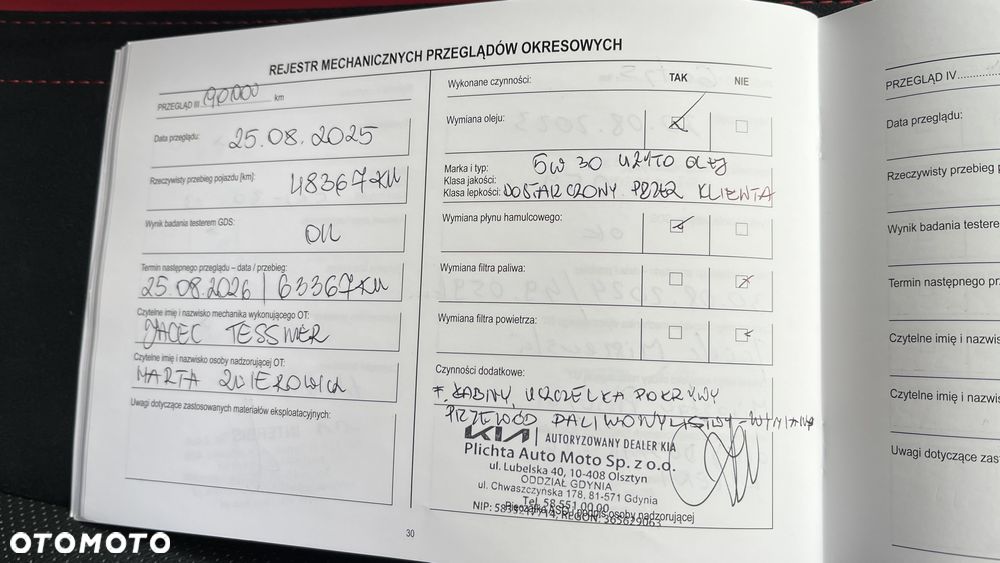 REJESTR MECHANICZNYCH PRZEGLĄDÓW OKRESOWYCH
PRZEGLĄD III 90.000 km
Data przeglądu: 25.08.2025
Rzeczywisty przebieg pojazdu [km]: 48367 KM
Wynik badania testerem GDS: OK
Termin następnego przeglądu – data / przebieg:
25.08.2026 | 63367 KM
Czytelne imię i nazwisko mechanika wykonującego OT:
JACEC TESSMER
Czytelne imię i nazwisko osoby nadzorującej OT:
MARTA
Uwagi dotyczące zastosowanych materiałów eksploatacyjnych:
Wykonane czynności: TAK NIE
Wymiana oleju:
Marka i typ: 5W30 UŻYTO OLEJ
Klasa jakości:
Klasa lepkości: DOSTARCZONY PRZEZ KLIENTA
Wymiana płynu hamulcowego:
Wymiana filtra paliwa:
Wymiana filtra powietrza:
Czynności dodatkowe:
F. KABINY, USZCZELKA POKRYWY
PRZEWÓD PALIWOWY, - WYMIANA
KIA | AUTORYZOWANY DEALER KIA
Plichta Auto Moto Sp. z o.o.
ul. Lubelska 40, 10-408 Olsztyn
ODDZIAŁ GDYNIA
ul. Chwaszczyńska 178, 81-571 Gdynia
Tel. 58 551 00 00
Pieczątka ASO i podpis osoby nadzorującej
NIP: REGON: 365629063
30
PRZEGLĄD IV
Data przeglądu:
Rzeczywisty przebieg
Wynik badania
Termin następnego
Czytelne imię i
Czytelne imię i
Uwagi dotyczące
OTOMOTO